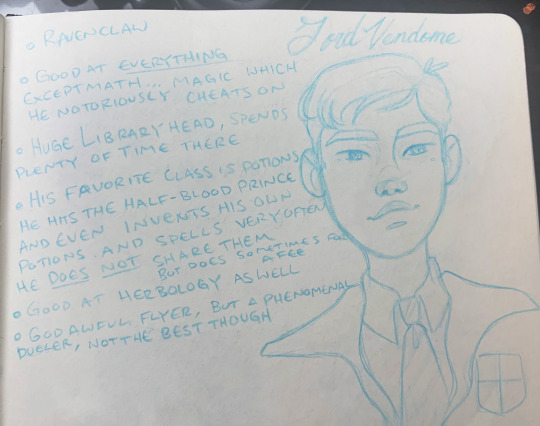 Lord Vendome
• RAVENCLAW
• GOOD AT EVERYTHING
EXCEPT MATH... MAGIC WHICH
HE NOTORIOUSLY CHEATS ON
• HUGE LIBRARY HEAD, SPENDS
PLENTY OF TIME THERE
• HIS FAVORITE CLASS IS POTIONS
HE HITS THE HALF-BLOOD PRINCE
AND EVEN INVENTS HIS OWN
POTIONS AND SPELLS VERY OFTEN
HE DOES NOT SHARE THEM
BUT DOES SOMETIMES FOR
A FEE
• GOOD AT HERBOLOGY AS WELL
• GOD AWFUL FLYER, BUT A PHENOMENAL
DUELER, NOT THE BEST THOUGH